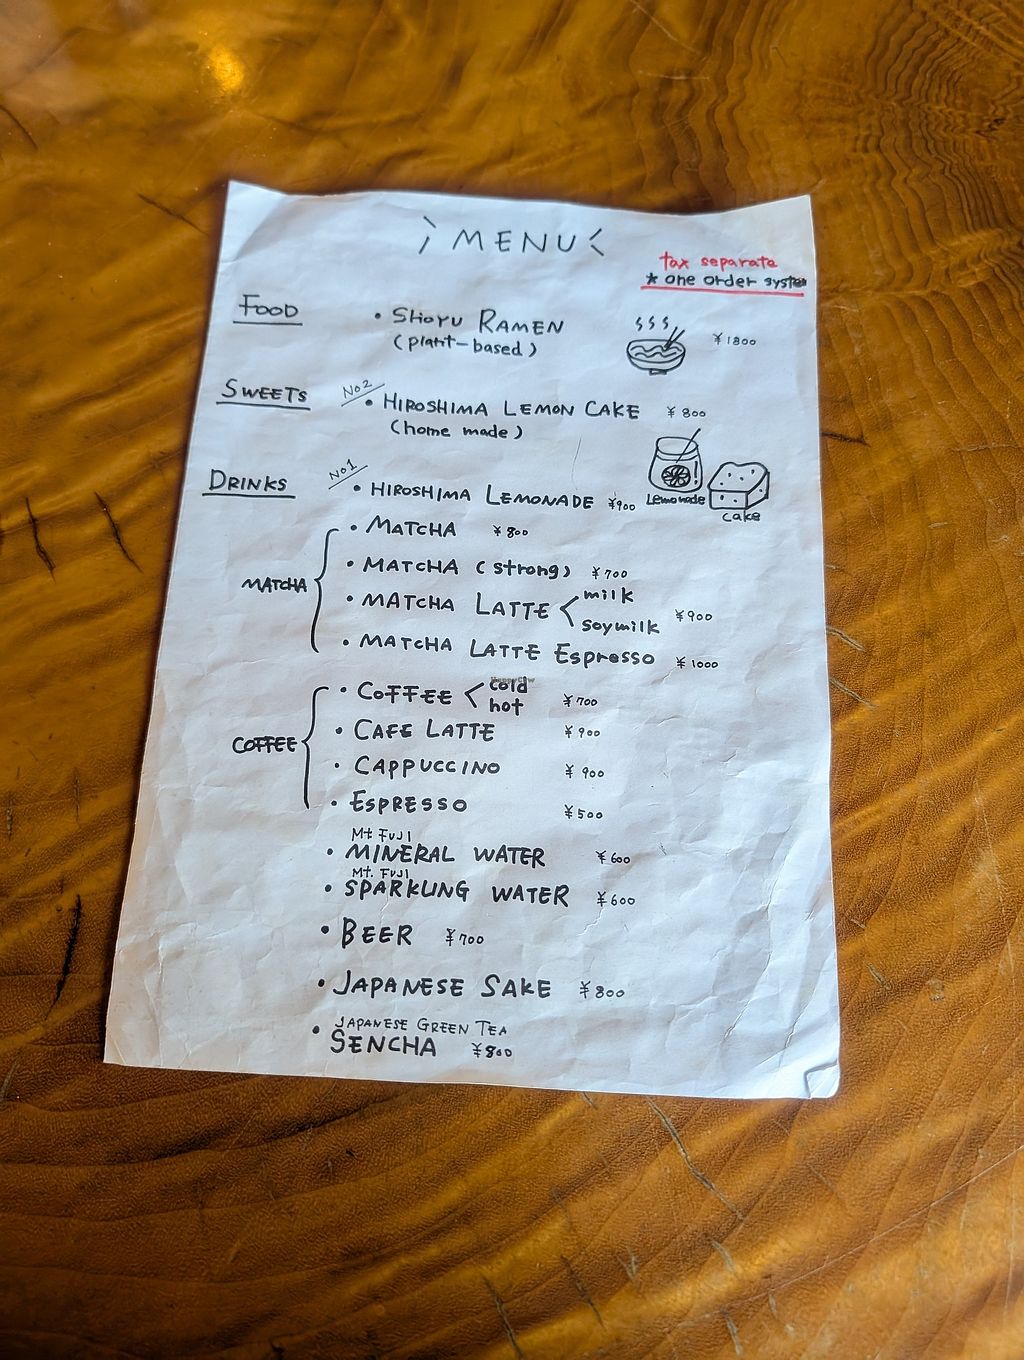 MENU
tax separate
* one order system
FOOD
• SHOYU RAMEN
(plant-based)
¥1800
SWEETS
No2
• HIROSHIMA LEMON CAKE ¥800
(home made)
DRINKS
No1
• HIROSHIMA LEMONADE ¥900
Lemonade
cake
MATCHA
• MATCHA ¥800
• MATCHA (strong) ¥700
• MATCHA LATTE < milk
soymilk ¥900
• MATCHA LATTE Espresso ¥1000
HappyCow
COFFEE
• COFFEE < cold
hot ¥700
• CAFE LATTE ¥900
• CAPPUCCINO ¥900
• ESPRESSO ¥500
Mt Fuji
• MINERAL WATER ¥600
Mt. Fuji
• SPARKLING WATER ¥600
• BEER ¥700
• JAPANESE SAKE ¥800
• JAPANESE GREEN TEA
SENCHA ¥800